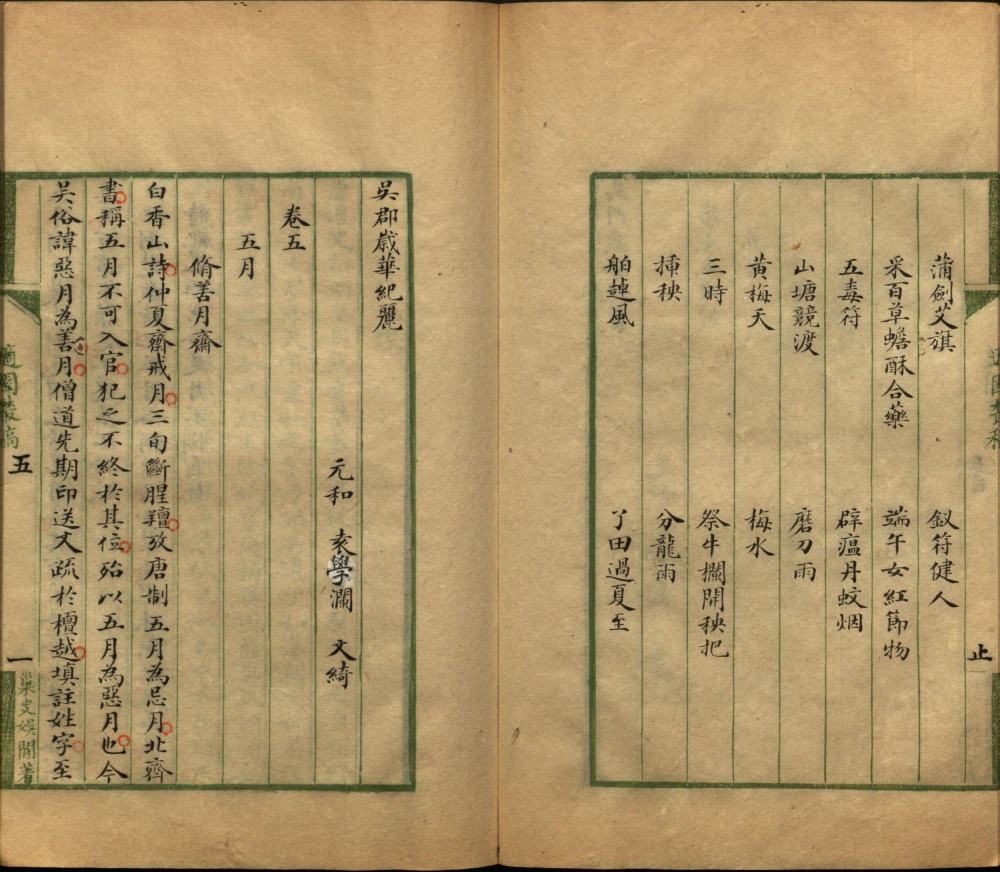 止
蒲劍艾旗 釵符健人
采百草蟾酥合藥 端午女紅節物
五毒符 辟瘟丹蚊烟
山塘競渡 磨刀雨
黃梅天 梅水
三時 祭牛欄開秧把
挿秧 分龍雨
舶趠風 了田過夏至
吳郡歲華紀麗
元和 袁學瀾 文綺
卷五
五月
脩善月齋
白香山詩仲夏齋戒月三旬斷腥羶攷唐制五月為忌月北齊
書稱五月不可入官犯之不終於其位殆以五月為惡月也今
吳俗諱惡月為善月僧道先期印送文疏於檀越填註姓字至
適園叢稿 五 一 巢父娛閒著